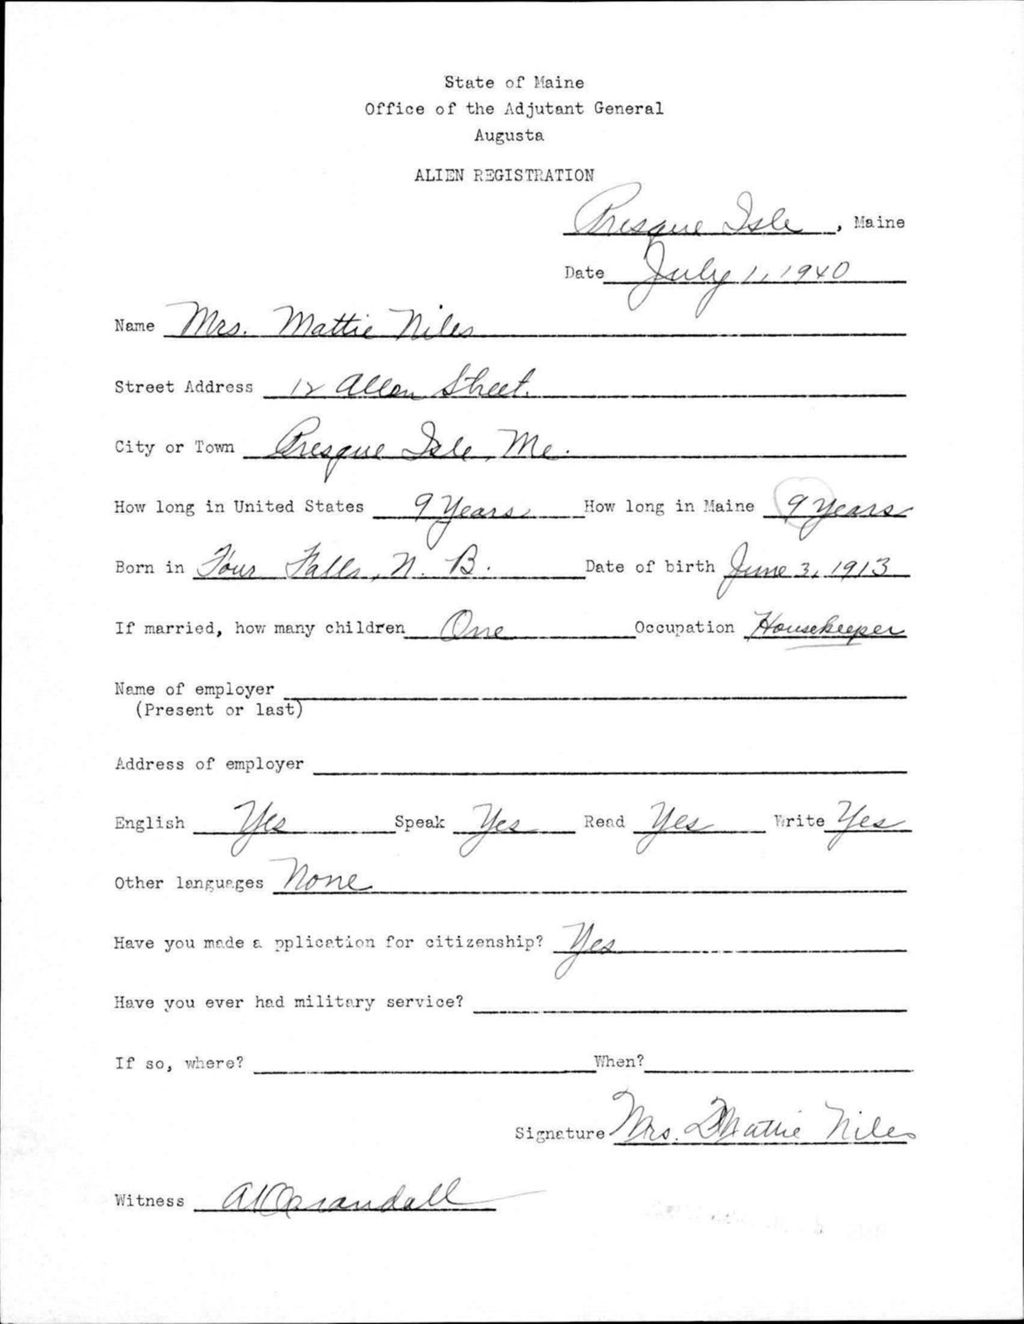 State of Maine
Office of the Adjutant General
Augusta
ALIEN REGISTRATION
Presque Isle, Maine
Date July 1, 1940
Name Mrs. Mattie Niles
Street Address 12 Allen Street.
City or Town Presque Isle, Me.
How long in United States 9 Years How long in Maine 9 Years
Born in Four Falls, N. B. Date of birth June 3, 1913
If married, how many children One Occupation Housekeeper
Name of employer
(Present or last)
Address of employer
English Yes Speak Yes Read Yes Write Yes
Other languages None
Have you made a pplication for citizenship? Yes
Have you ever had military service?
If so, where? When?
Signature Mrs. Mattie Niles
Witness Crandall